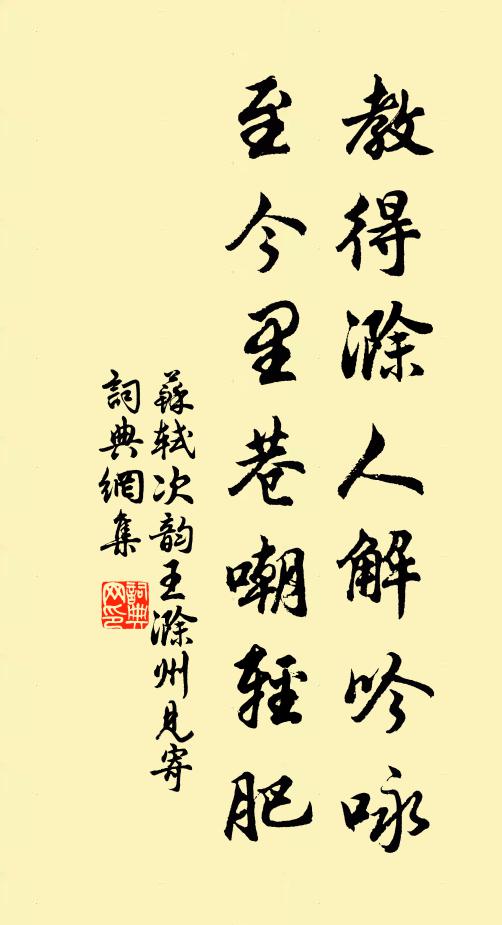 教得滁人解吟咏
至今里巷嘲輕肥
蘇軾次韵王滁州見寄
詞典網集
詞典網印